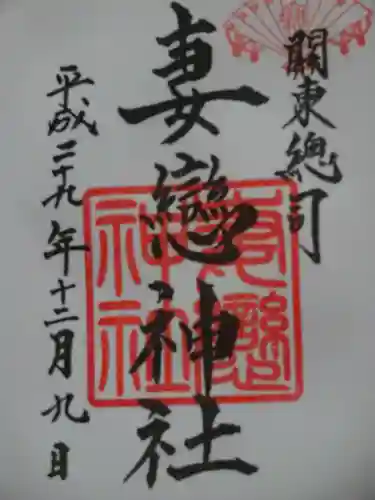 關東總司
妻戀神社
妻戀
神社
平成二十九年十二月九日